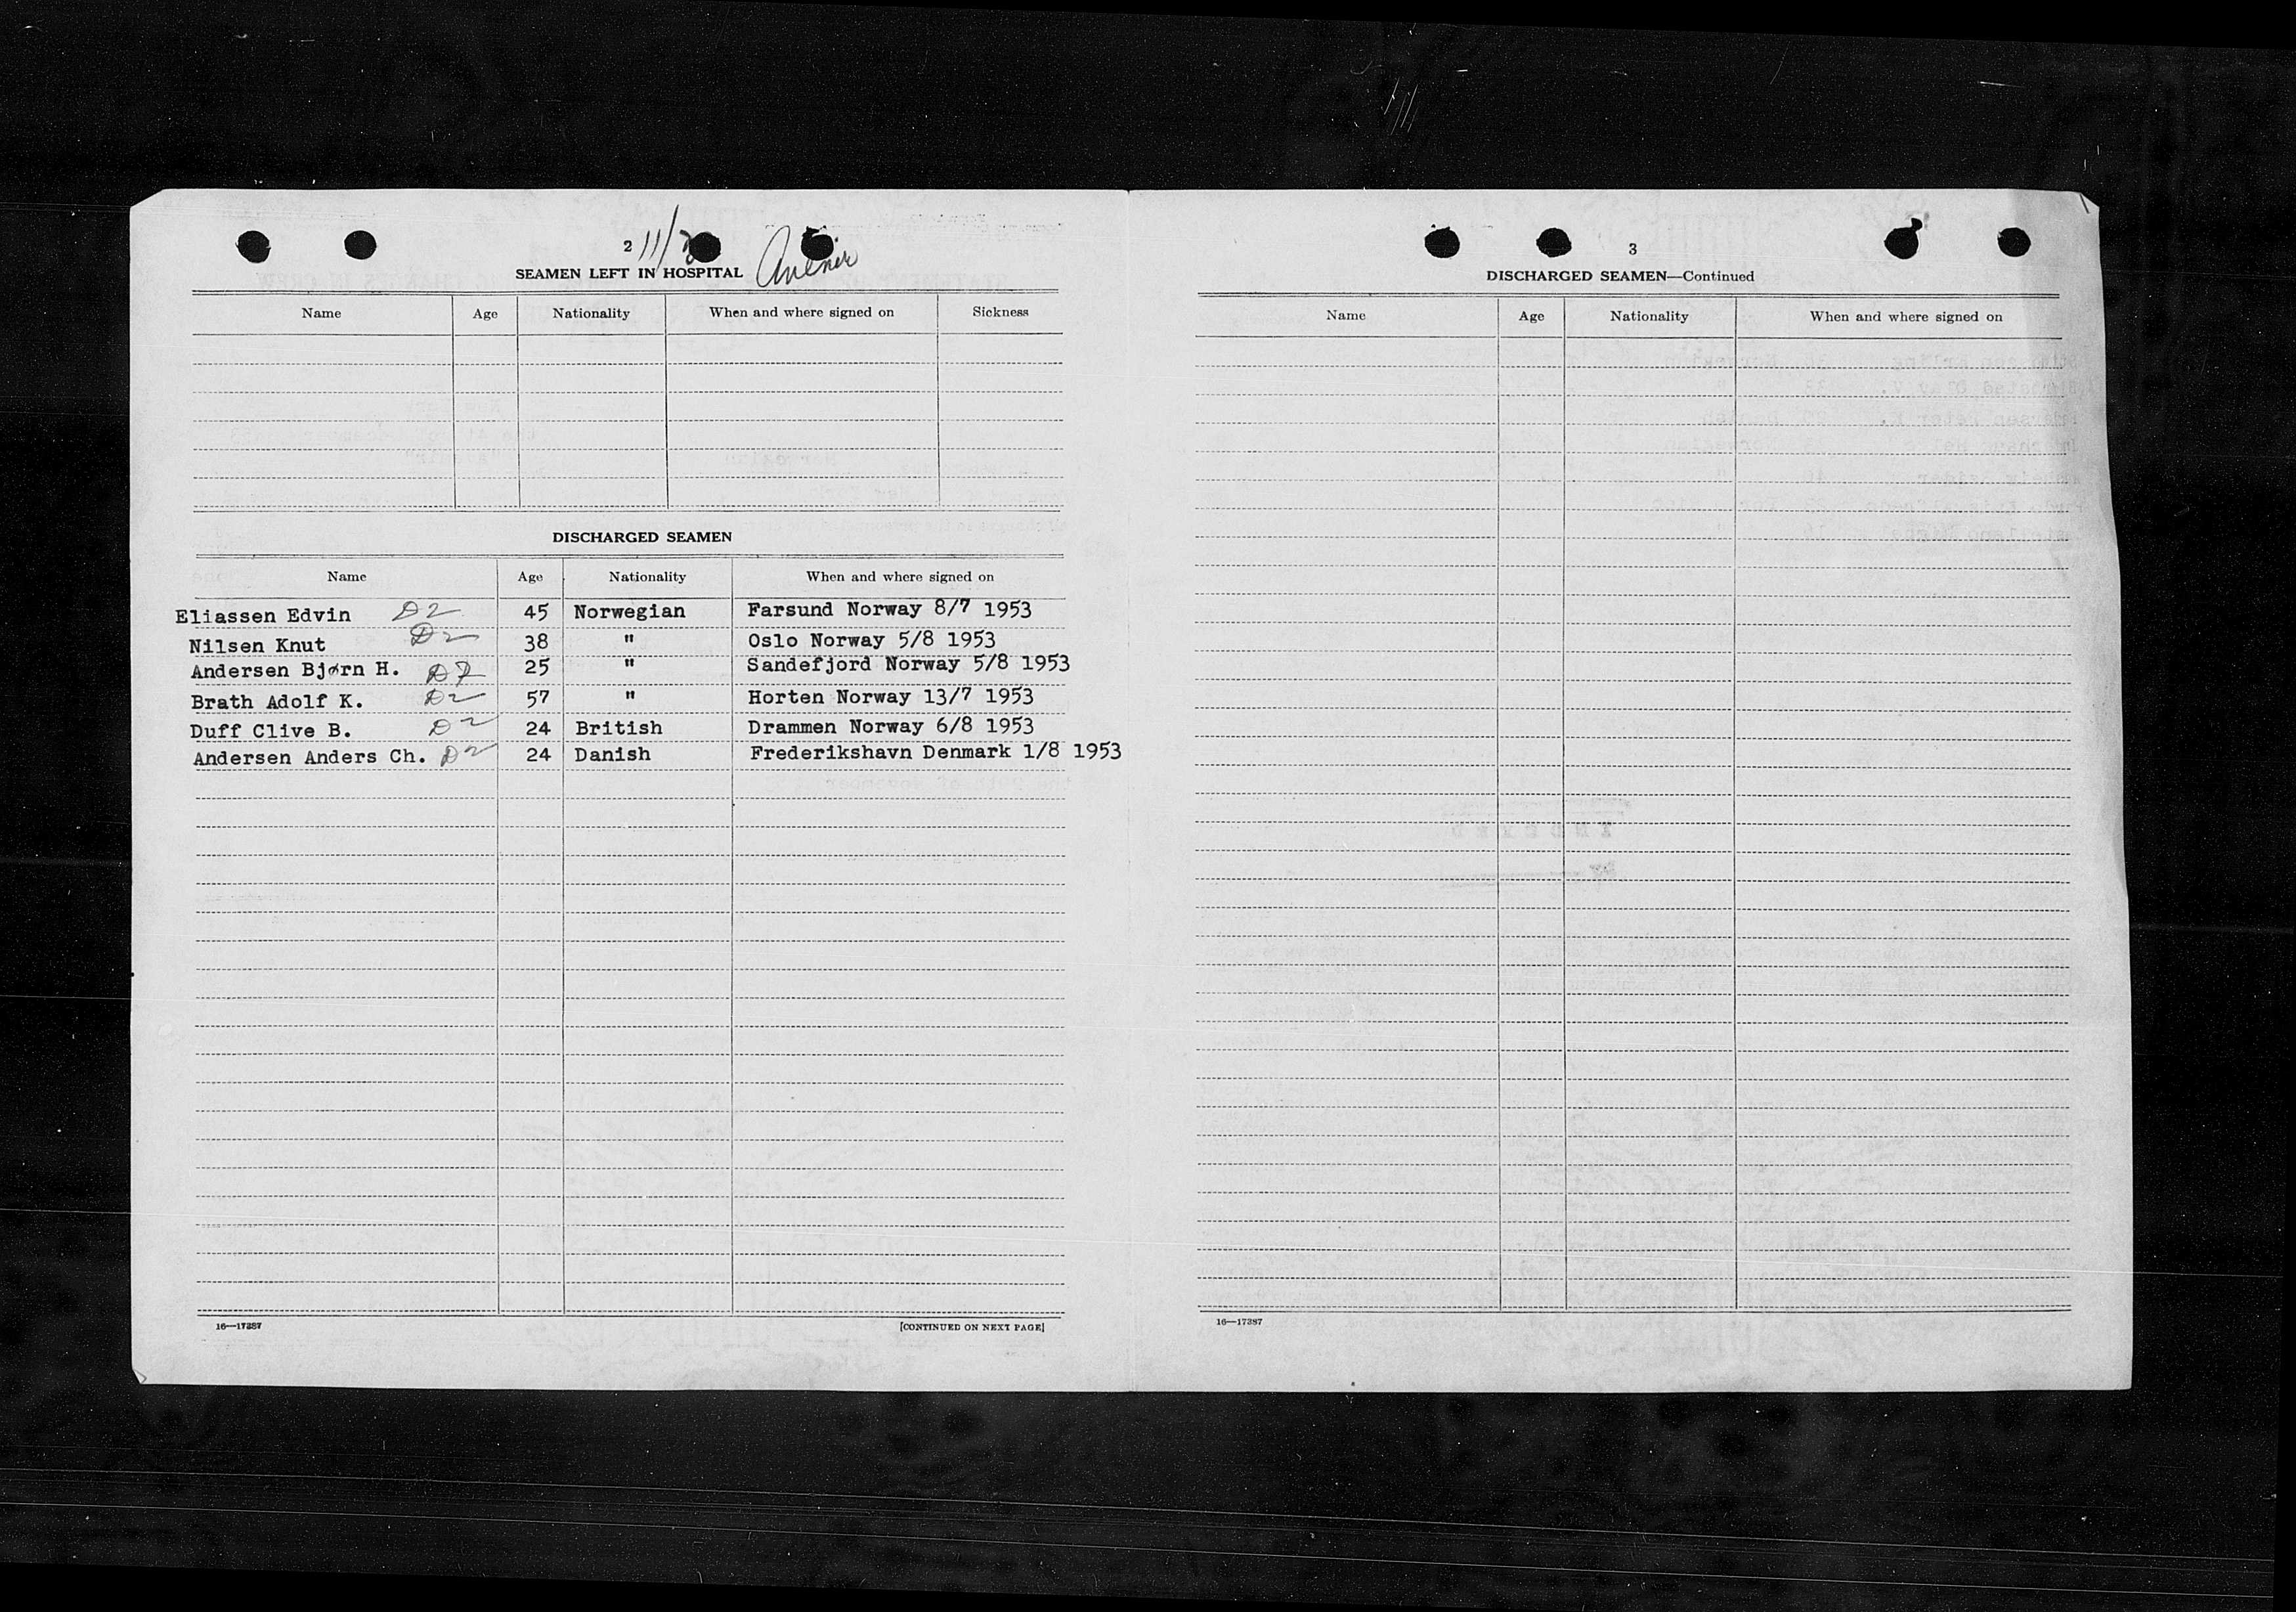 2 11/
SEAMEN LEFT IN HOSPITAL
Name Age Nationality When and where signed on Sickness
DISCHARGED SEAMEN
Name Age Nationality When and where signed on
Eliassen Edvin D2 45 Norwegian Farsund Norway 8/7 1953
Nilsen Knut D2 38 " Oslo Norway 5/8 1953
Andersen Bjørn H. D2 25 " Sandefjord Norway 5/8 1953
Brath Adolf K. D2 57 " Horten Norway 13/7 1953
Duff Clive B. D2 24 British Drammen Norway 6/8 1953
Andersen Anders Ch. D2 24 Danish Frederikshavn Denmark 1/8 1953
16—17387 [CONTINUED ON NEXT PAGE]
3
DISCHARGED SEAMEN—Continued
Name Age Nationality When and where signed on
16—17387